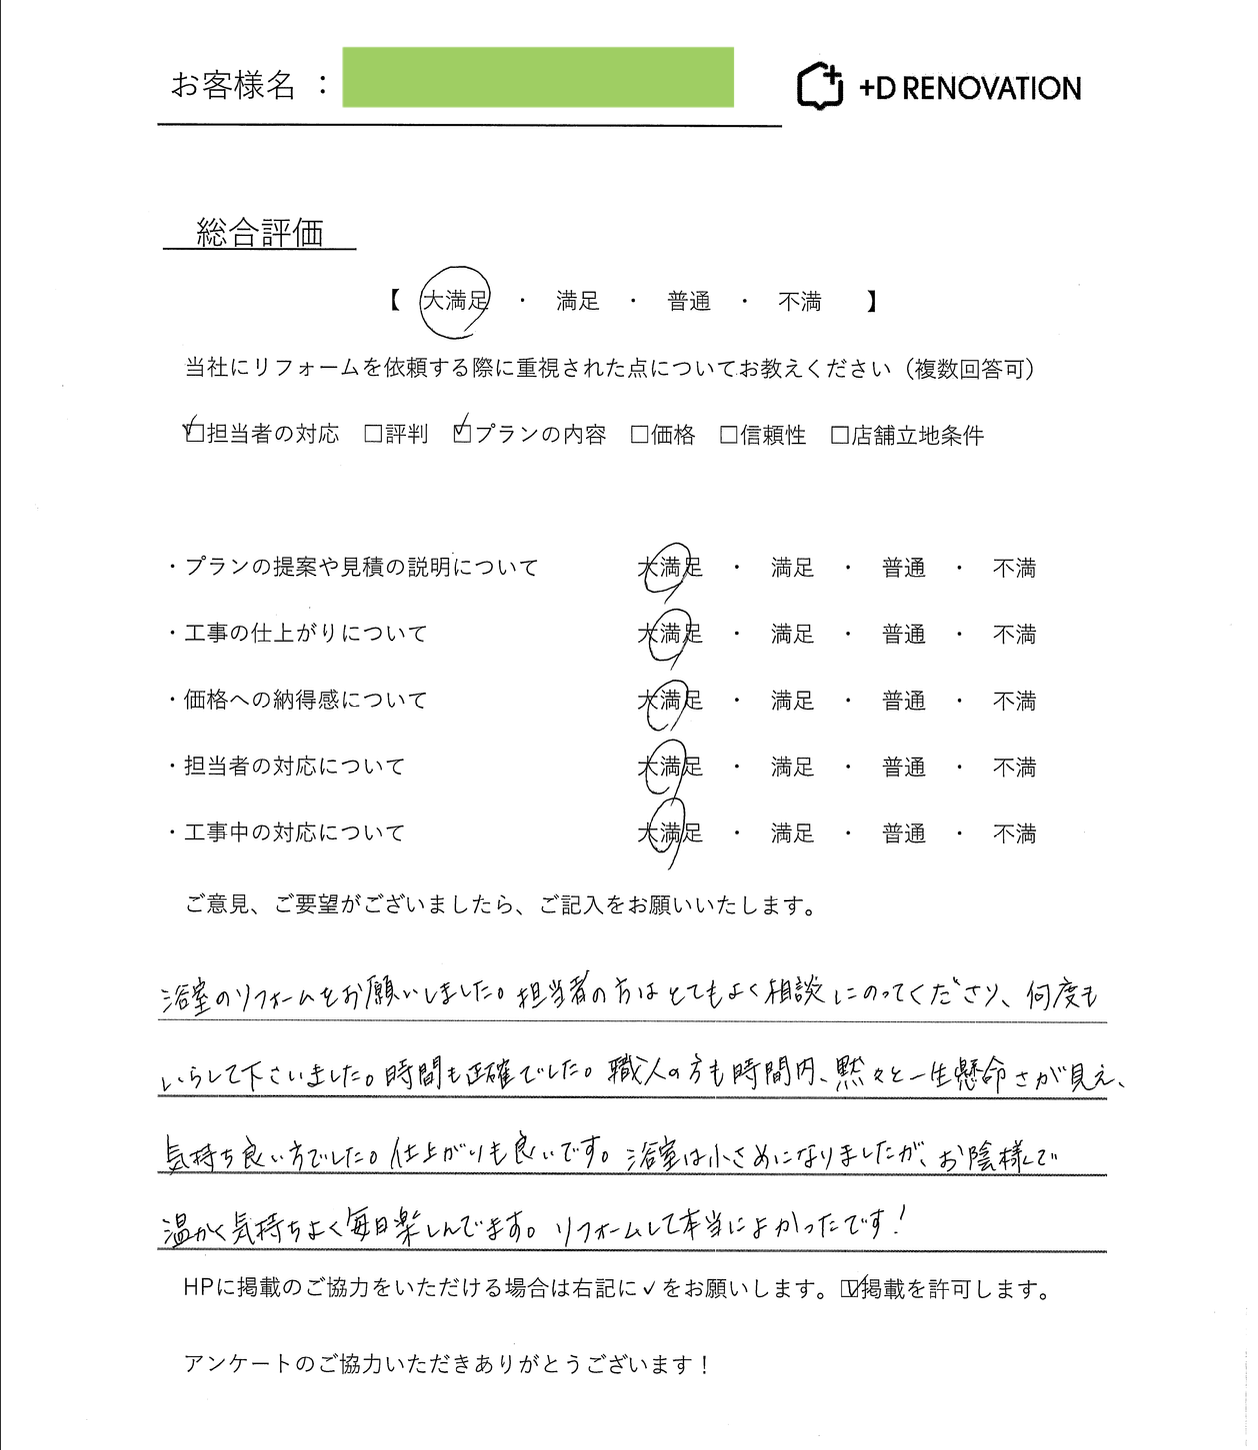 お客様名 ：
+D RENOVATION
総合評価
【 大満足 ・ 満足 ・ 普通 ・ 不満 】
当社にリフォームを依頼する際に重視された点についてお教えください（複数回答可）
☑担当者の対応 □評判 ☑プランの内容 □価格 □信頼性 □店舗立地条件
・プランの提案や見積の説明について 大満足 ・ 満足 ・ 普通 ・ 不満
・工事の仕上がりについて 大満足 ・ 満足 ・ 普通 ・ 不満
・価格への納得感について 大満足 ・ 満足 ・ 普通 ・ 不満
・担当者の対応について 大満足 ・ 満足 ・ 普通 ・ 不満
・工事中の対応について 大満足 ・ 満足 ・ 普通 ・ 不満
ご意見、ご要望がございましたら、ご記入をお願いいたします。
浴室のリフォームをお願いしました。担当者の方はとてもよく相談にのってくださり、何度も
いらして下さいました。時間も正確でした。職人の方も時間内、黙々と一生懸命さが見え、
気持ち良い方でした。仕上がりも良いです。浴室は小さめになりましたが、お陰様で
温かく気持ちよく毎日楽しんでます。リフォームして本当によかったです！
HPに掲載のご協力をいただける場合は右記に✓をお願いします。☑掲載を許可します。
アンケートのご協力いただきありがとうございます！